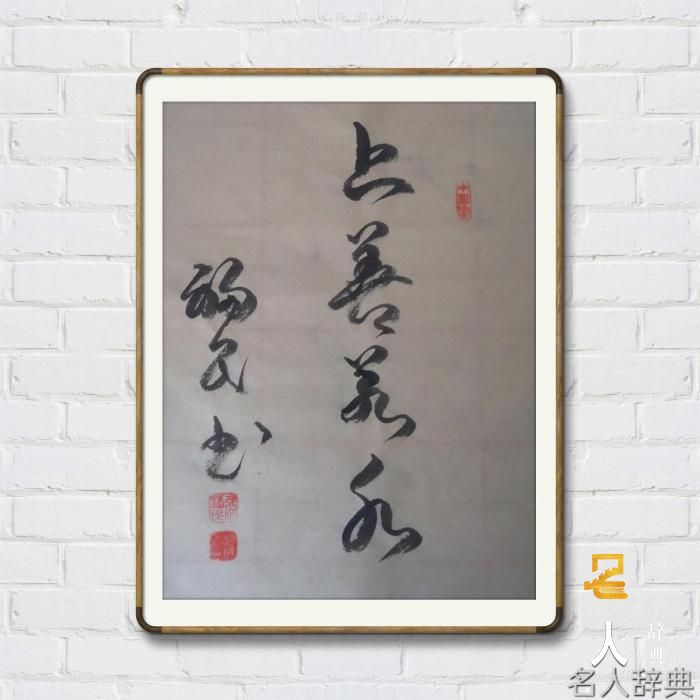 上善若水
福民书
名
人
辞典
名人辞典